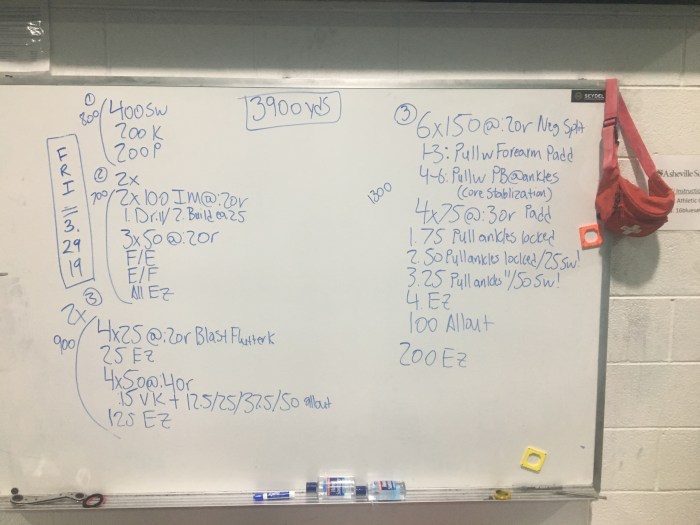 3900 yds
FRI
3.
29
19
①
800
400 SW
200 K
200 P
②
700
2x
2x100 IM@:20r
1. Drill/2. Build ea 25
3x50@:20r
F/E
E/F
All EZ
③
2x
900
4x25@:20r Blast Flutterk
25 EZ
4x50@:40r
:15 VK + 12.5/25/37.5/50 allout
125 EZ
③
1300
6x150@:20r Neg Split
1-3: Pull w Forearm Padd
4-6: Pull w PB@ankles
(Core Stablization)
4x75@:30r Padd
1. 75 Pull ankles locked
2. 50 Pull ankles locked/25 Sw!
3. 25 Pull ankles "/50 Sw!
4. EZ
100 Allout
200 EZ
SEYDEL
Asheville